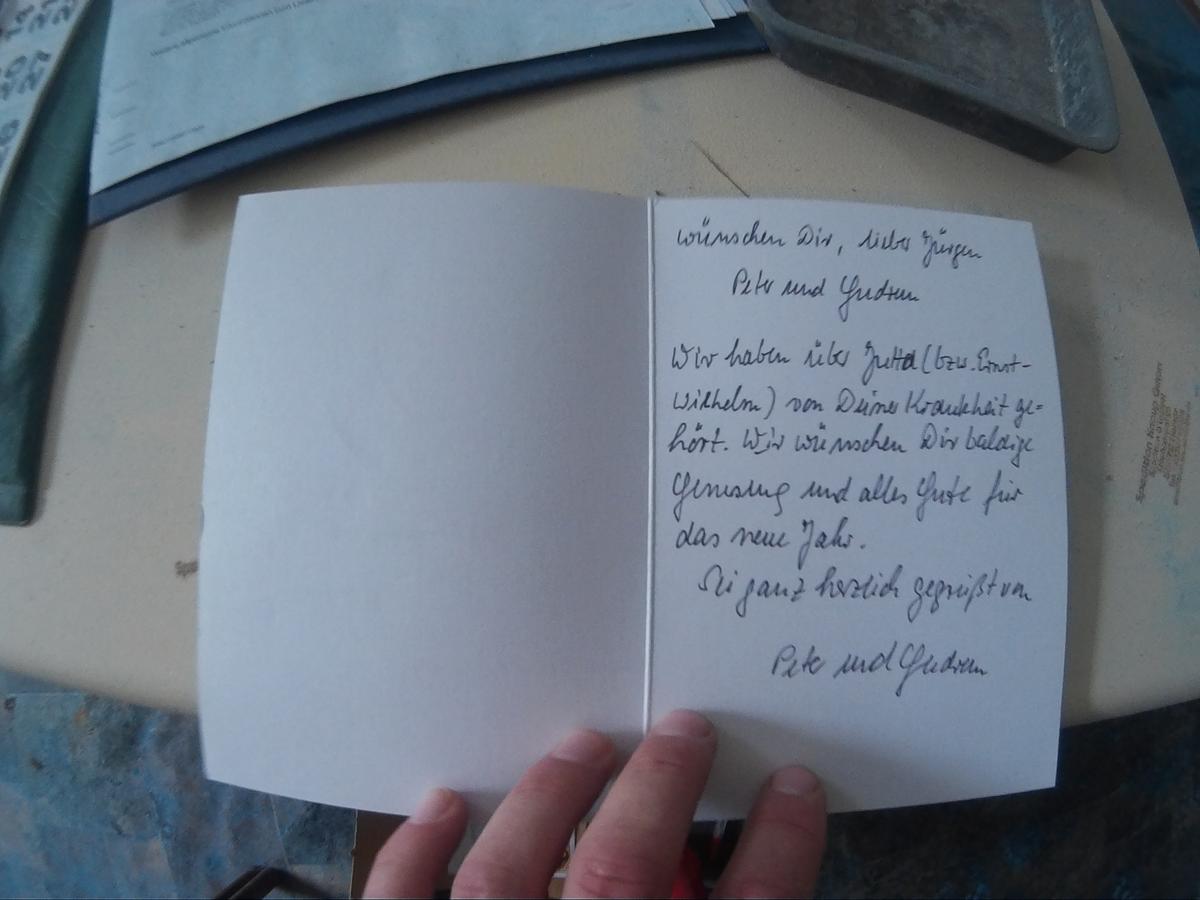 wünschen Dir, lieber Jürgen
Peter und Gudrun
Wir haben über Jutta (bzw. Ernst-
Wilhelm) von Deiner Krankheit ge=
hört. Wir wünschen Dir baldige
Genesung und alles Gute für
das neue Jahr.
Sei ganz herzlich gegrüßt von
Peter und Gudrun